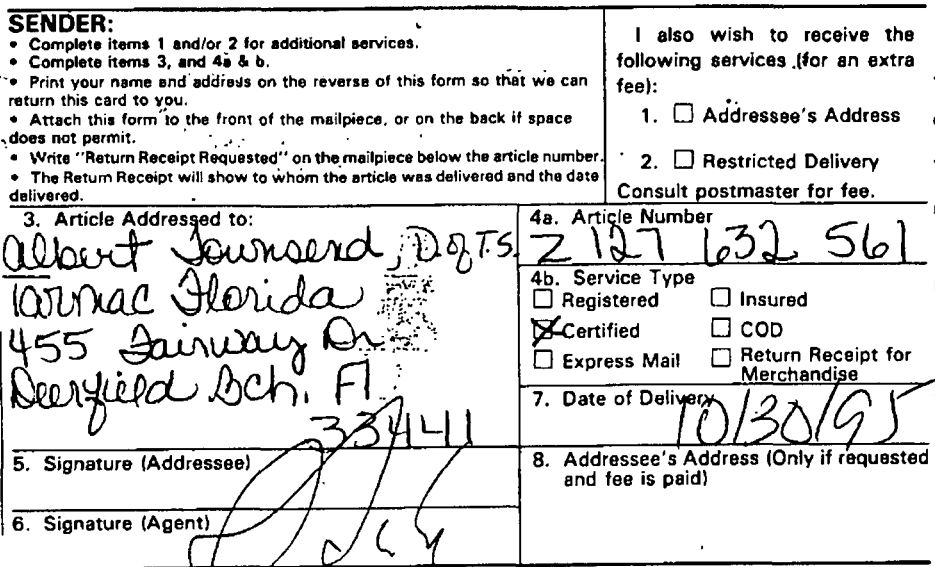 SENDER:
• Complete items 1 and/or 2 for additional services.
• Complete items 3, and 4a & b.
• Print your name and address on the reverse of this form so that we can
return this card to you.
• Attach this form to the front of the mailpiece, or on the back if space
does not permit.
• Write "Return Receipt Requested" on the mailpiece below the article number.
• The Return Receipt will show to whom the article was delivered and the date
delivered.
I also wish to receive the
following services (for an extra
fee):
1. ☐ Addressee's Address
2. ☐ Restricted Delivery
Consult postmaster for fee.
3. Article Addressed to:
Albert Townsend, D of T.S.
Tarmac Florida
455 Fairway Dr
Deerfield Bch. Fl
33441
4a. Article Number
Z 127 632 561
4b. Service Type
☐ Registered ☐ Insured
☒ Certified ☐ COD
☐ Express Mail ☐ Return Receipt for
Merchandise
7. Date of Delivery
10/30/95
5. Signature (Addressee)
6. Signature (Agent)
8. Addressee's Address (Only if requested
and fee is paid)